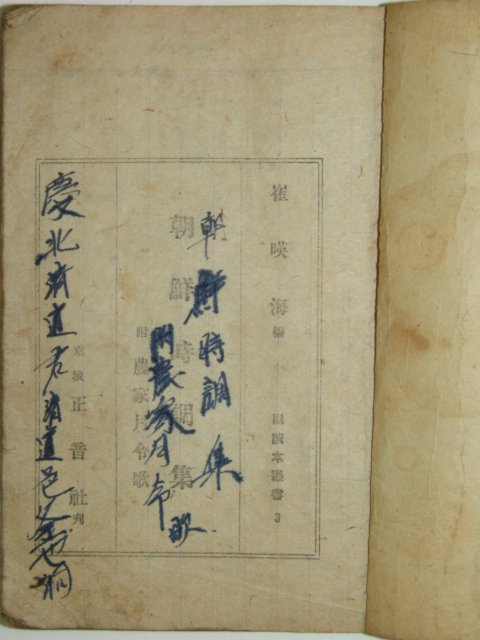 崔暎海 編 副讀本叢書 3
朝鮮時調集
朝鮮時調集
附農家月令歌
附 農家月令歌
京城 正音社 刊
慶北清道君清道邑
洞